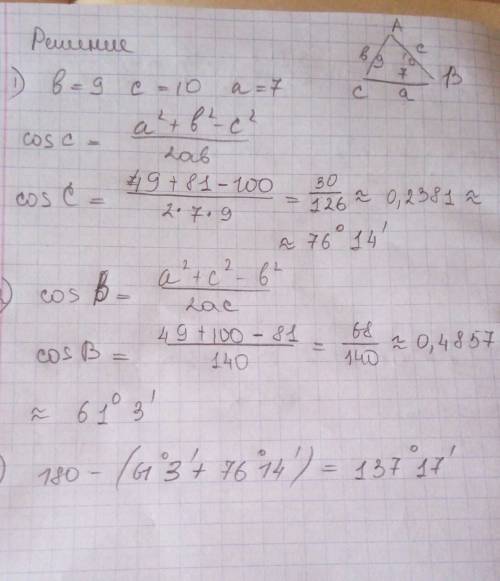 Решение
A
в 9 10 c
7
C a B
1) в = 9 c = 10 a = 7
cos c = (a² + в² - c²) / 2ав
cos C = (49 + 81 - 100) / (2·7·9) = 30/126 ≈ 0,2381 ≈
≈ 76° 14'
) cos B = (a² + c² - в²) / 2ac
cos B = (49 + 100 - 81) / 140 = 68/140 ≈ 0,4857
≈ 61° 3'
) 180 - (61° 3' + 76° 14') = 137° 17'